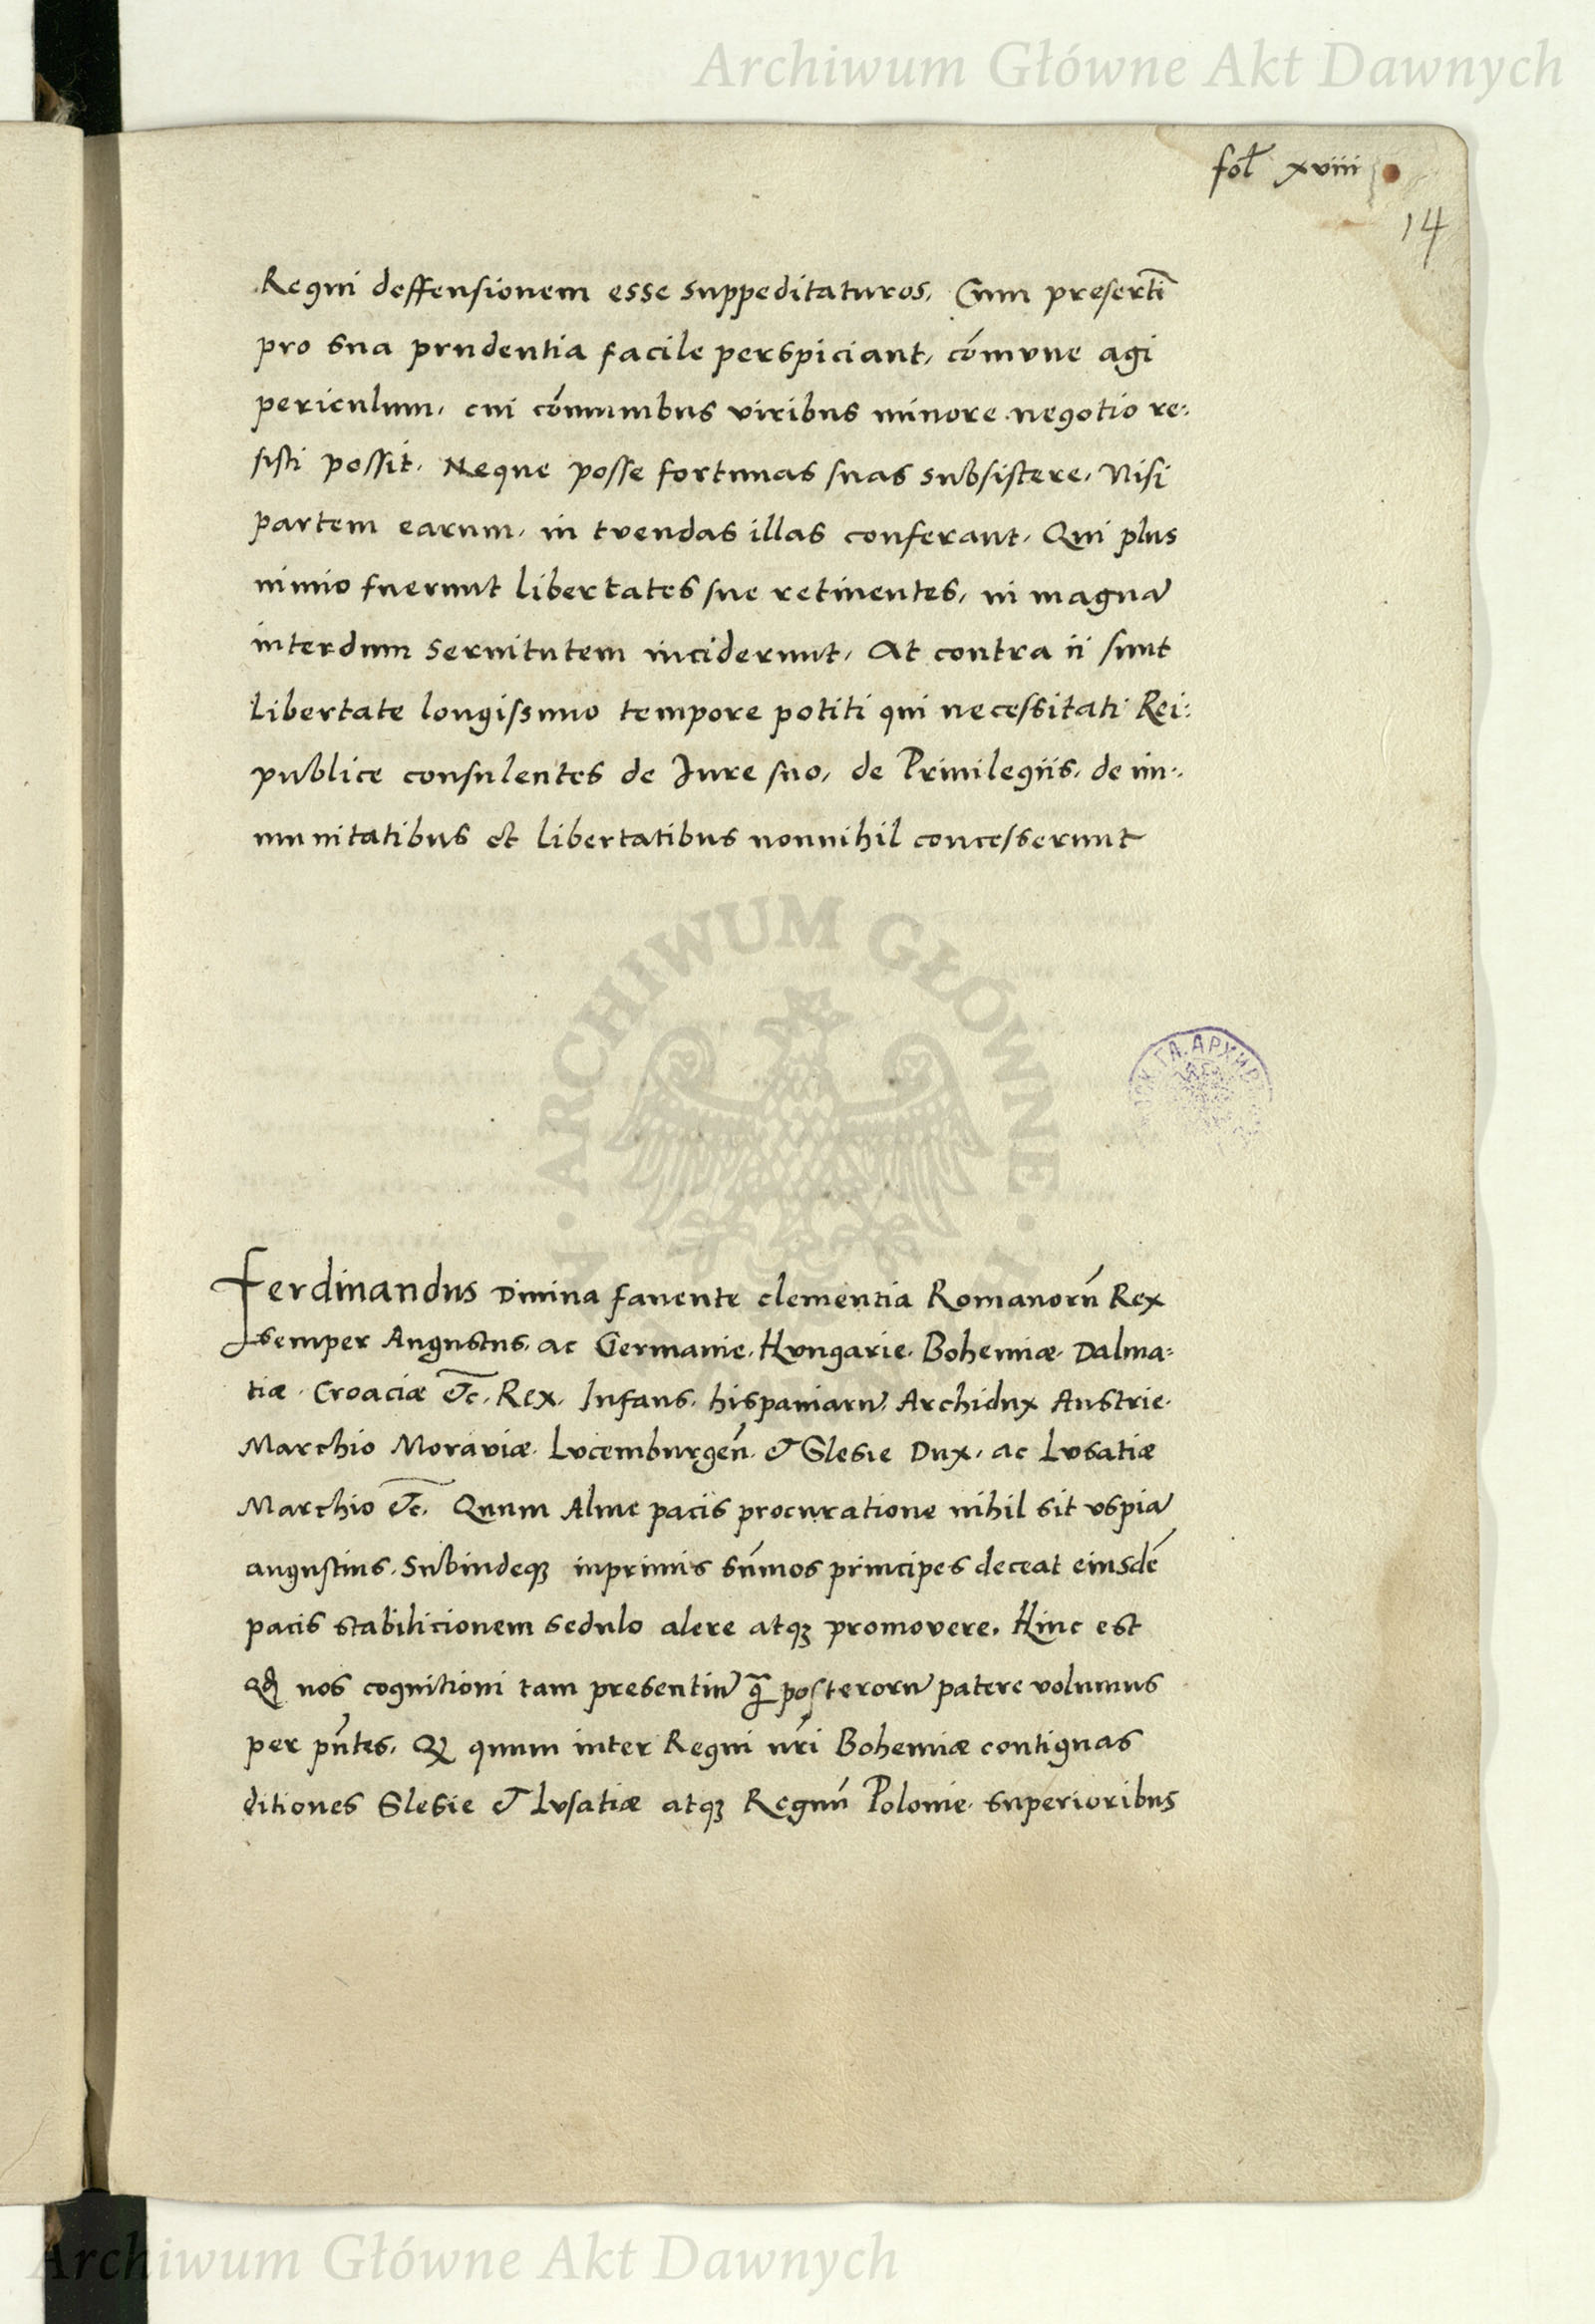 Archiwum Główne Akt Dawnych
fol xviii
14
Regni deffensionem esse suppeditaturos, Cum presertĩ
pro sua prudentia facile perspiciant, cõmune agi
periculum, cui cõmunibus viribus minore negotio re:
sisti possit. Neque posse fortunas suas subsistere, Nisi
partem earum, in tuendas illas conferant. Qui plus
nimio fuerunt libertates sue retinentes, in magnã
interdum seruitutem inciderunt, At contra ii sunt
libertate longissimo tempore potiti qui necessitati Rei:
publice consulentes de Iure suo, de Priuilegiis, de im:
munitatibus et libertatibus nonnihil concesserunt
ARCHIWUM GŁÓWNE
Ferdinandus Diuina fauente clementia Romanorũ Rex
semper Augustus, ac Germanie, Hungarie, Bohemiæ, Dalma:
tiæ, Croaciæ &c̃, Rex, Infans, hispaniarũ, Archidux Austrie,
Marchio Morauiæ, Lucemburgeñ, & Slesie Dux, ac Lusatiæ
Marchio &c̃, Quum Alme pacis procuratione nihil sit uspiã
augustius, Subindeqꝫ inprimis sũmos principes deceat eiusdẽ
pacis stabilicionem sedulo alere atqꝫ promouere. Hinc est
Qd nos cognitioni tam presentiũ q̃ posterorũ patere volumus
per pñtes, Qd quum inter Regni nri Bohemiæ contiguas
ditiones Slesie & Lusatiæ atqꝫ Regnũ Polonie superioribus
Archiwum Główne Akt Dawnych